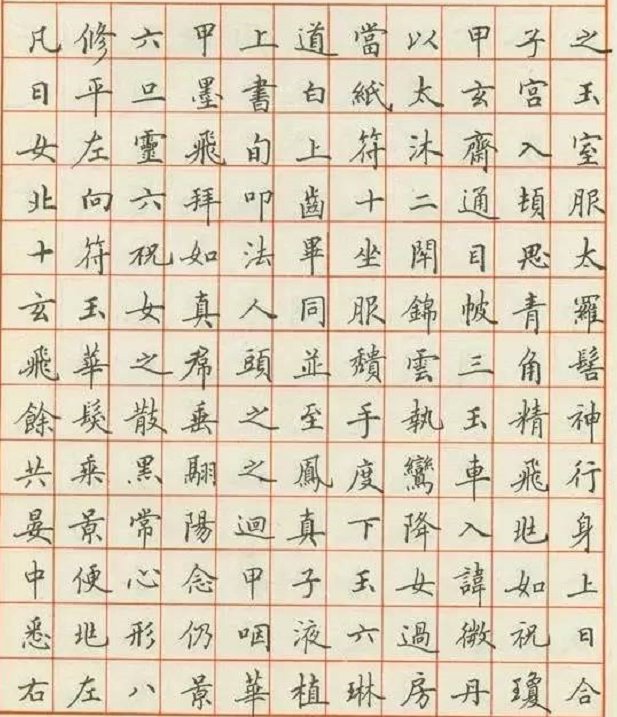 凡修六甲上道當以甲子之
日平旦墨書白紙太玄宮玉
女左靈飛旬上符沐齋入室
北向六拜叩齒十二通頓服
十符祝如法畢坐閉目思太
玄玉女真人同服錦帔青羅
飛華之帬頭並穨雲三角髻
餘髮散垂之至手執玉精神
共乘黑翮之鳳度鸞車飛行
晏景常陽迴真下降入兆身
中便心念甲子玉女諱如上
悉兆形仍咽液六過微祝曰
右左八景華植琳房丹瓊合